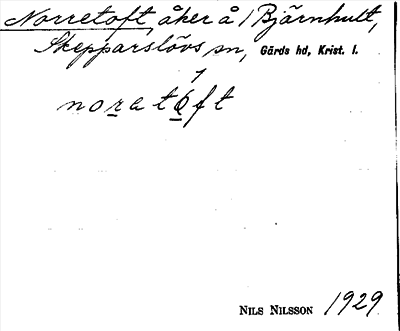 Norretoft, åker å / Bjärnhult,
Skepparslövs sn, Gärds hd, Krist. l.
noratóft
NILS NILSSON 1929